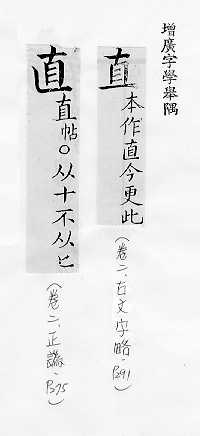 增廣字學舉隅
直 本作直今更此
(卷二、古文字略、P.91)
直 直帖○从十不从匕
(卷二、正譌、P.75)